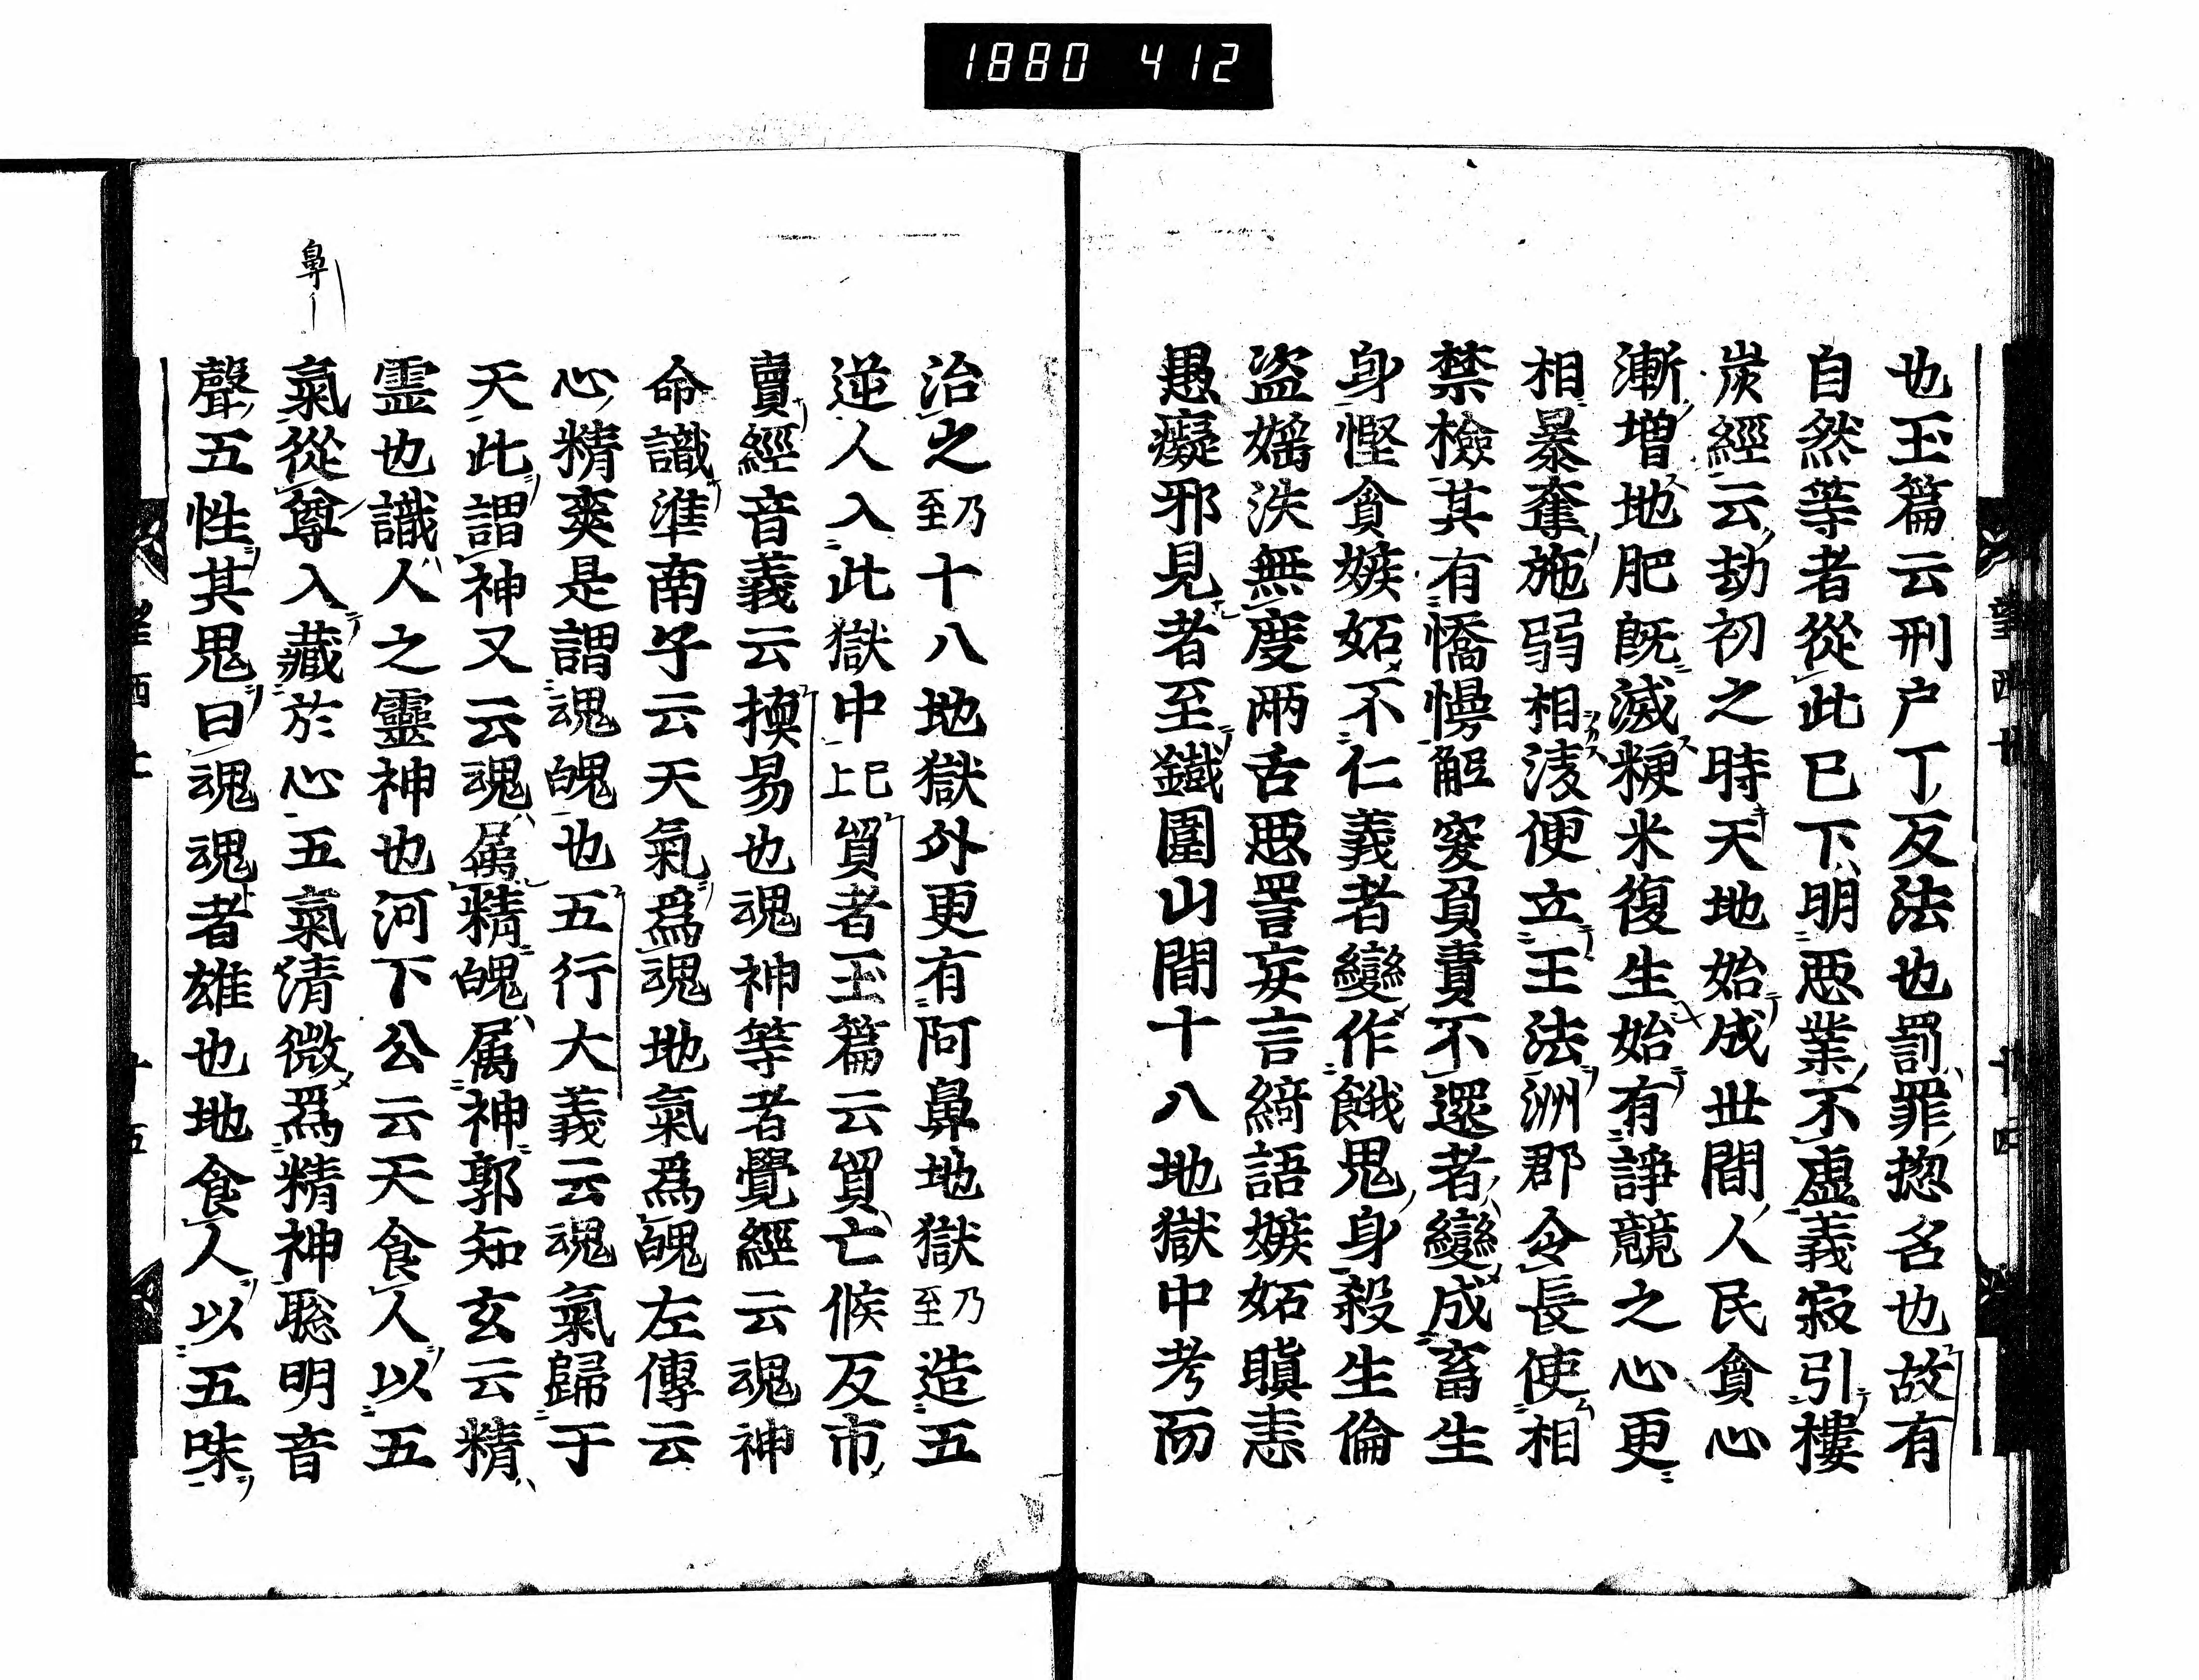 1880 412
也玉篇云刑戸丁反法也罰罪揔名也故有
自然等者從此已下明惡業不虛義寂引樓
炭經云劫初之時天地始成世間人民貪心
漸増地肥既滅粳米復生始有諍競之心更
相暴奪施弱相淩便立王法洲郡令長使相
禁檢其有憍慢觝突負責不還者變成畜生
身慳貪嫉妬不仁義者變作餓鬼身殺生偷
盗婬泆無度兩舌惡詈妄言綺語嫉妬瞋恚
愚癡邪見者至鐵圍山間十八地獄中考而
治之乃至十八地獄外更有阿鼻地獄乃至造五
逆人入此獄中已上比貿者玉篇云貿亡候反市
賣經音義云換易也魂神等者覺經云魂神
命識淮南子云天氣爲魂地氣爲魄左傳云
心精爽是謂魂魄也五行大義云魂氣歸于
天此謂神又云魂属精魄属神郭知玄云精
霊也識人之靈神也河下公云天食人以五
氣從尊入藏於心五氣清微爲精神聡明音
聲五性其鬼曰魂魂者雄也地食人以五味
鼻